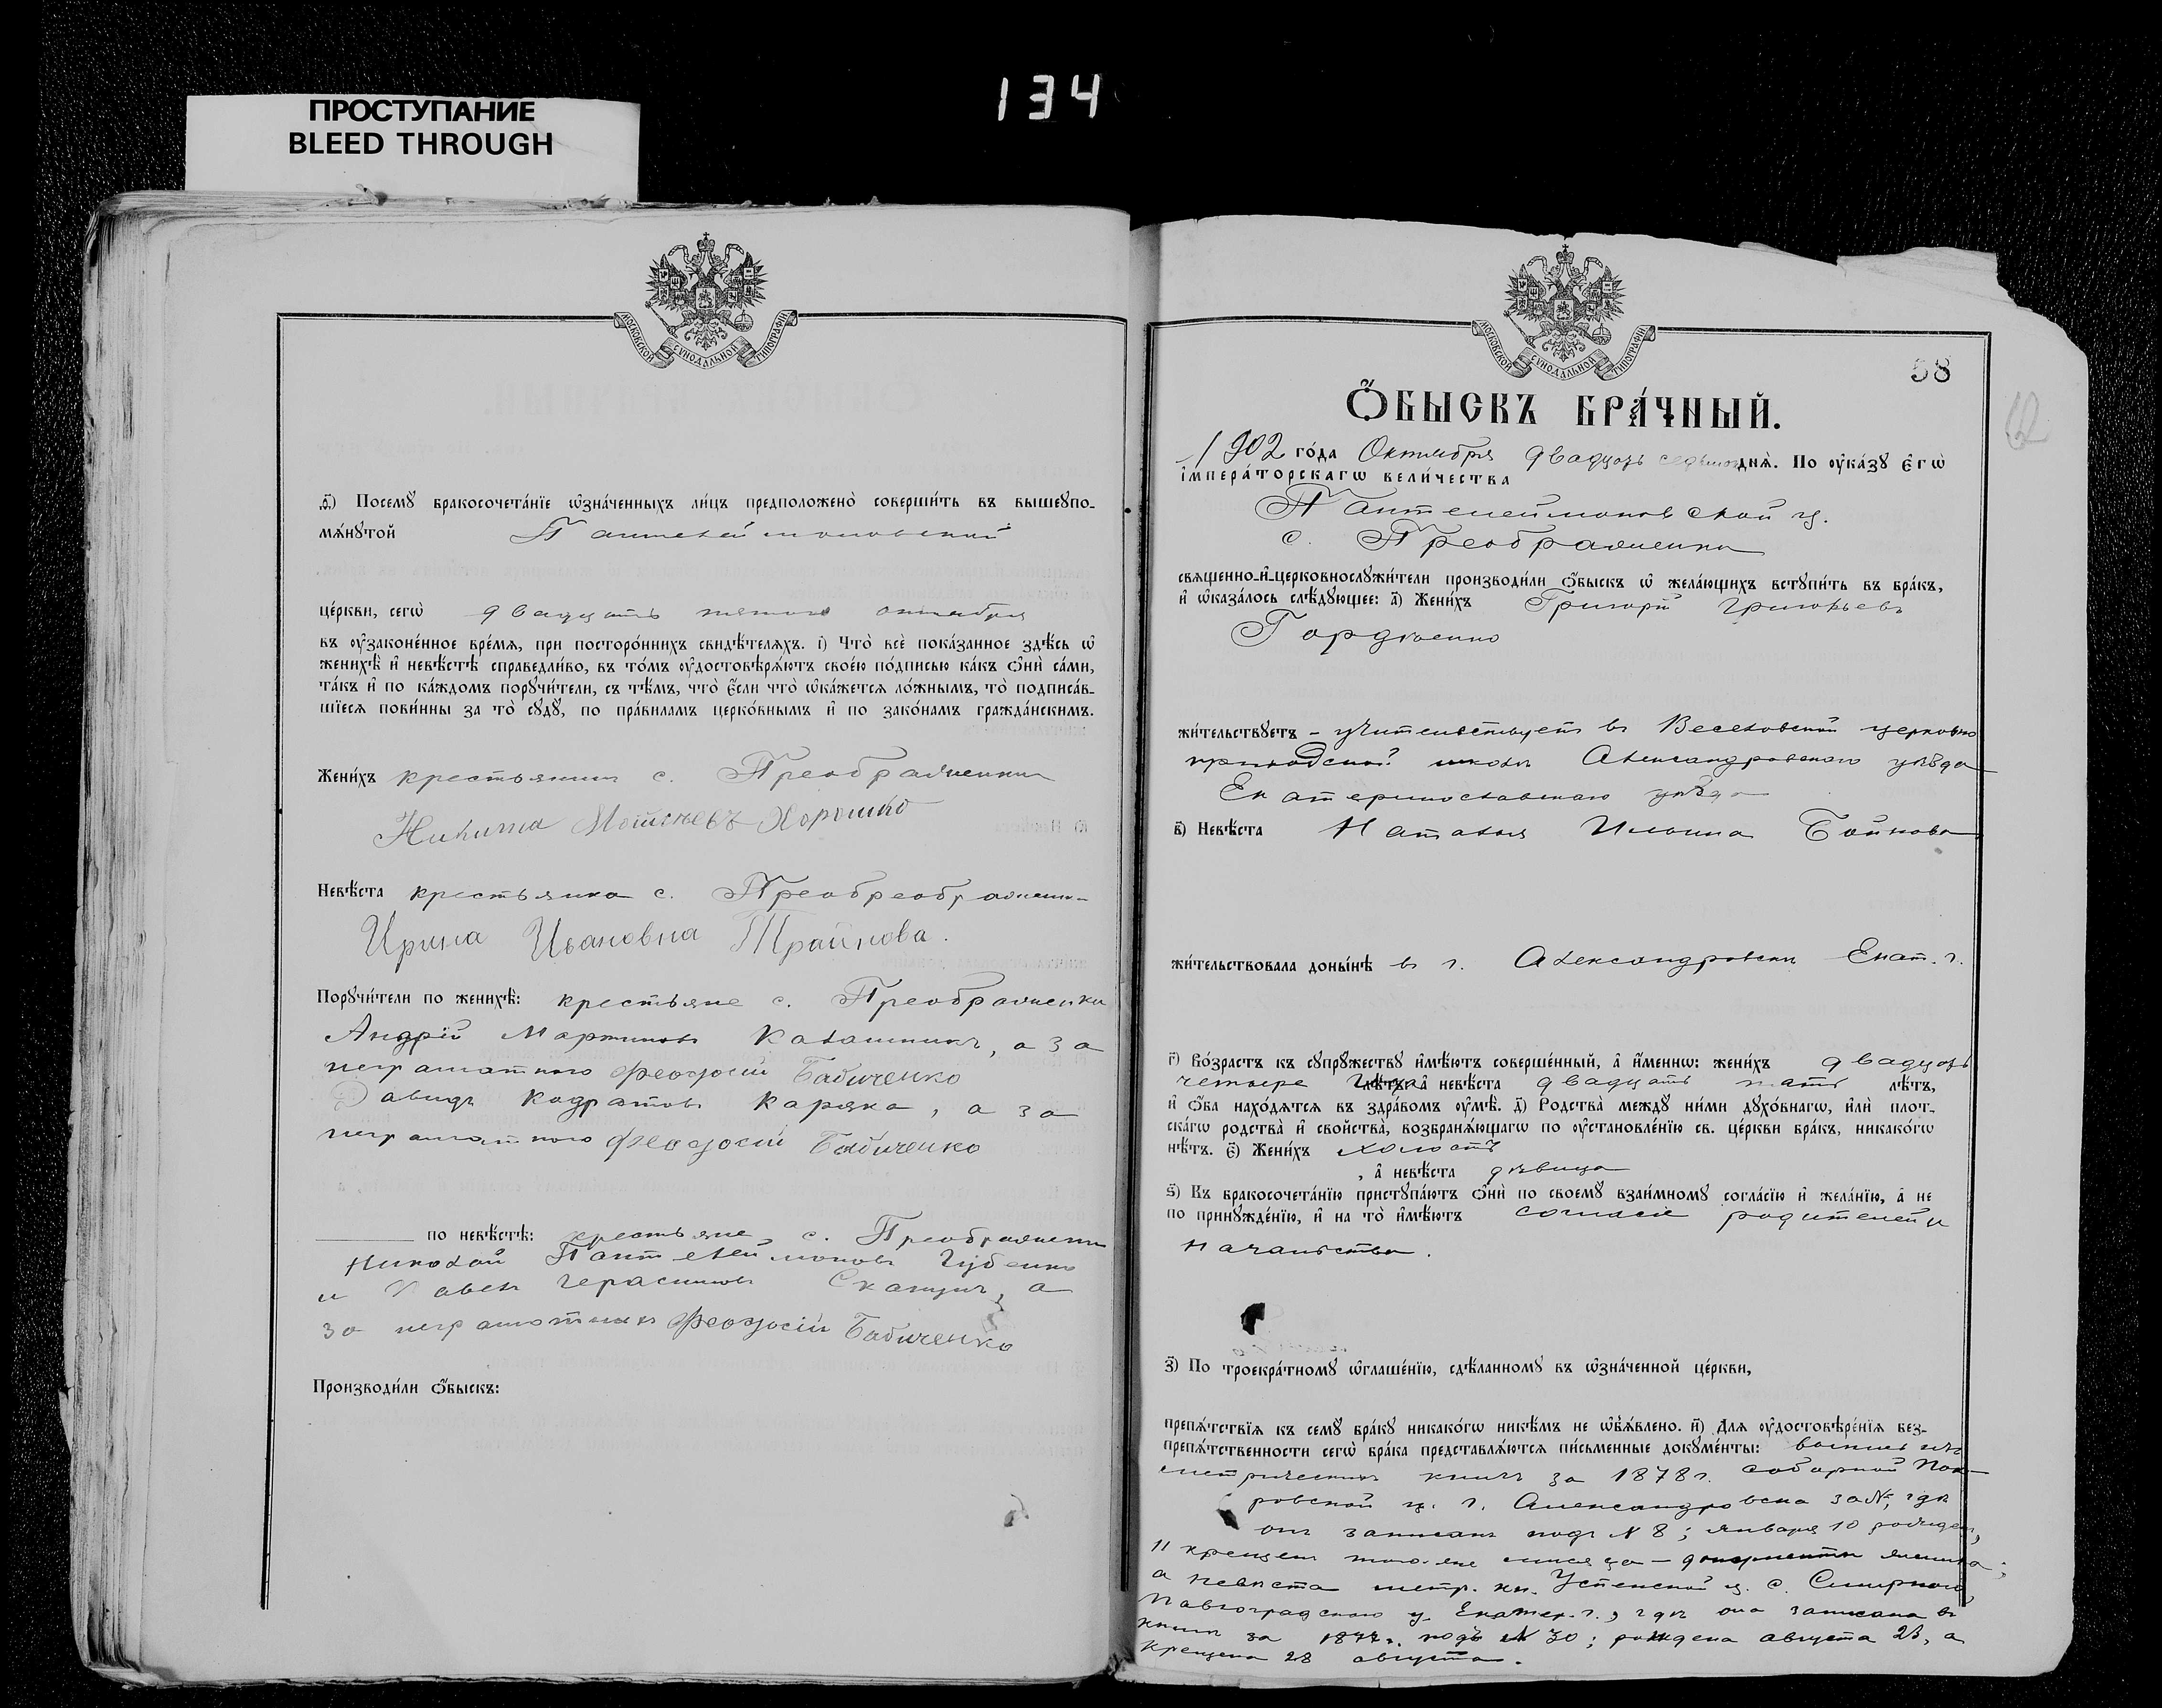 134
ПРОСТУПАНИЕ
BLEED THROUGH
МОСКОВСКОЙ СѴНОДАЛЬНОЙ ТИПОГРАФІИ
ѳ҃) Посемꙋ̀ бракосочета́нїе ѡ҆зна́ченныхъ ли́цъ предположено̀ соверши́ть въ вышеꙋпо-
мѧ́нꙋтой Пантелеймоновской
це́ркви, сегѡ̀ двадцать пятого октября
въ ᲂу҆зако́ненное вре́мѧ, при посторо́ннихъ свидѣ́телѧхъ. і҃) Что̀ всѐ пока́занное здѣ́сь ѡ҆
женихѣ̀ и҆ невѣ́стѣ справедли́во, въ то́мъ ᲂу҆достовѣрѧ́ютъ свое́ю по́дписью ка́къ ѻ҆нѝ са́ми,
та́къ и҆ по ка́ждомъ порꙋчи́тели, съ тѣ́мъ, что̀ є҆́сли что̀ ѡ҆ка́жетсѧ ло́жнымъ, то̀ подписа́в-
шїесѧ пови́нны за то̀ сꙋдꙋ̀, по пра́виламъ церко́внымъ и҆ по зако́намъ гражда́нскимъ.
Жени́хъ крестьянин с. Преображенки
Никита Моисеевъ Хорошко
Невѣ́ста крестьянка с. Преобреображенки
Ирина Ивановна Трайнова.
Порꙋчи́тели по женихѣ̀: крестьяне с. Преображенки
Андрій Мартинов Калашник, а за
неграматного Феодосій Бабиченко
Давид Кодратов Каряка, а за
неграматного Феодосій Бабиченко
по невѣ́стѣ: крестьяне с. Преображенки
Николай Пантелеймонов Губенко
и Павел Герасимов Скапцич, а
за неграмотных Феодосій Бабиченко
Производи́ли ѻ҆́быскъ:
МОСКОВСКОЙ СѴНОДАЛЬНОЙ ТИПОГРАФІИ
58
62
Ѻ҆́БЫСКЪ БРА́ЧНЫЙ.
1902 го́да Октября двадцать седьмого днѧ̀. По ᲂу҆ка́зꙋ є҆гѡ̀
і҆мпера́торскагѡ вели́чества
Пантелеймоновской ц.
с. Преображенки
свѧщенно-и҆-церковнослꙋжи́тели производи́ли ѻ҆́быскъ ѡ҆ жела́ющихъ встꙋпи́ть въ бра́къ,
и҆ ѡ҆каза́лось слѣ́дꙋющее: а҃) Жени́хъ Григорій Григорьевъ
Гордіенко
жи́тельствꙋетъ - учительствует в Веселовской церковно
приходской школы Александровского уѣзда
Екатеринославского уѣзда
в҃) Невѣ́ста Наталья Ильина Бойнова
жи́тельствовала доны́нѣ в г. Александровск Екат. г.
г҃) Во́зрастъ къ сꙋпрꙋ́жествꙋ и҆мѣ́ютъ соверше́нный, а҆ и҆́меннѡ: жени́хъ двадцать
четыре года а҆ невѣ́ста двадцать пять лѣ́тъ,
и҆ ѻ҆́ба нахо́дѧтсѧ въ здра́вомъ ᲂу҆мѣ̀. д҃) Родства̀ междꙋ̀ ни́ми дꙋхо́внагѡ, и҆лѝ плот-
ска́гѡ родства̀ и҆ свойства̀, возбранѧ́ющагѡ по ᲂу҆становле́нїю св. це́ркви бра́къ, никако́гѡ
нѣ́тъ. є҃) Жени́хъ холостъ
, а҆ невѣ́ста дѣвица
ѕ҃) Къ бракосочета́нїю пристꙋпа́ютъ ѻ҆нѝ по своемꙋ̀ взаи́мномꙋ согла́сїю и҆ жела́нїю, а҆ не
по принꙋжде́нїю, и҆ на то̀ и҆мѣ́ютъ согласіе родителей и
начальства.
з҃) По троекра́тномꙋ ѡ҆глаше́нїю, сдѣ́ланномꙋ въ ѡ҆зна́ченной це́ркви,
препѧ́тствїѧ къ семꙋ̀ бра́кꙋ никако́гѡ никѣ́мъ не ѡ҆б̾ѧ́влено. и҃) Длѧ ᲂу҆достовѣре́нїѧ без-
препѧ́тственности сегѡ̀ бра́ка представлѧ́ютсѧ пи́сьменные докꙋме́нты: выпись изъ
метрических книгъ за 1878 г. соборной Пок-
ровской ц. г. Александровска за №, гдѣ
он записан подъ № 8; января 10 рожден,
11 крещен того-же месяца - документы жениха;
а невѣста метр. кн. Успенской ц. с. Смирного
Павлоградского у. Екатер. г., гдѣ она записана в
книги за 1877 г. подъ № 30; рождена августа 23, а
крещена 28 августа.